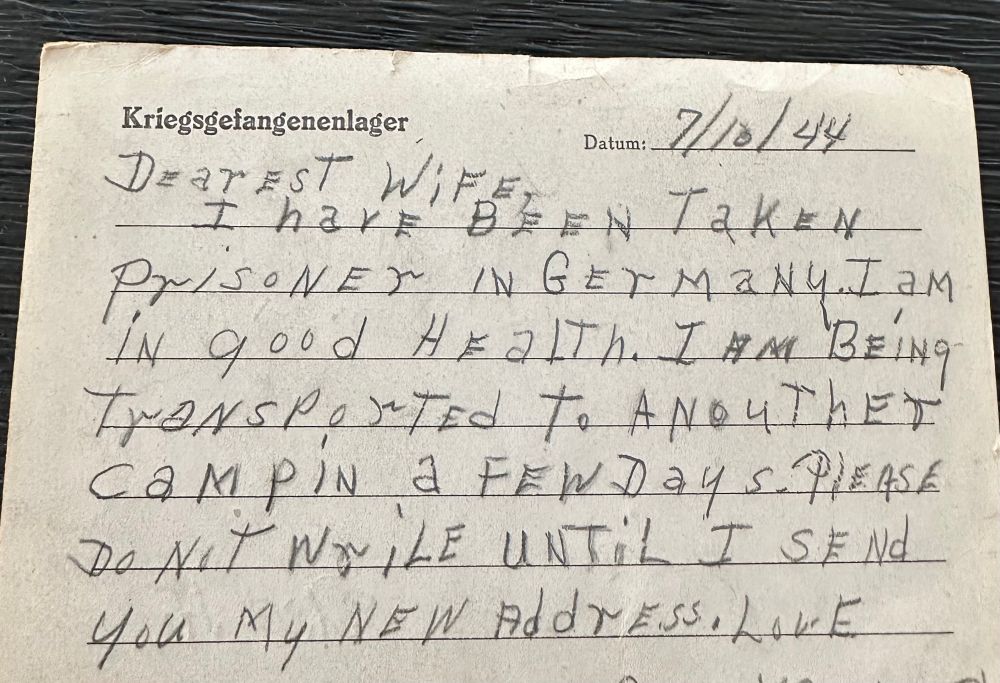 Kriegsgefangenenlager
Datum: 7/10/44
DEarEsT WiFE,
I havE BEEN TaKEN
PrISoNEr IN GErMaNy. I aM
iN good HEalTh. I AM BEiNg
TraNsPorTEd To ANouThEr
CaMP iN a FEW Days. PlEASE
Do NoT WriLE UNTiL I SENd
you My NEW AddrEss. LovE